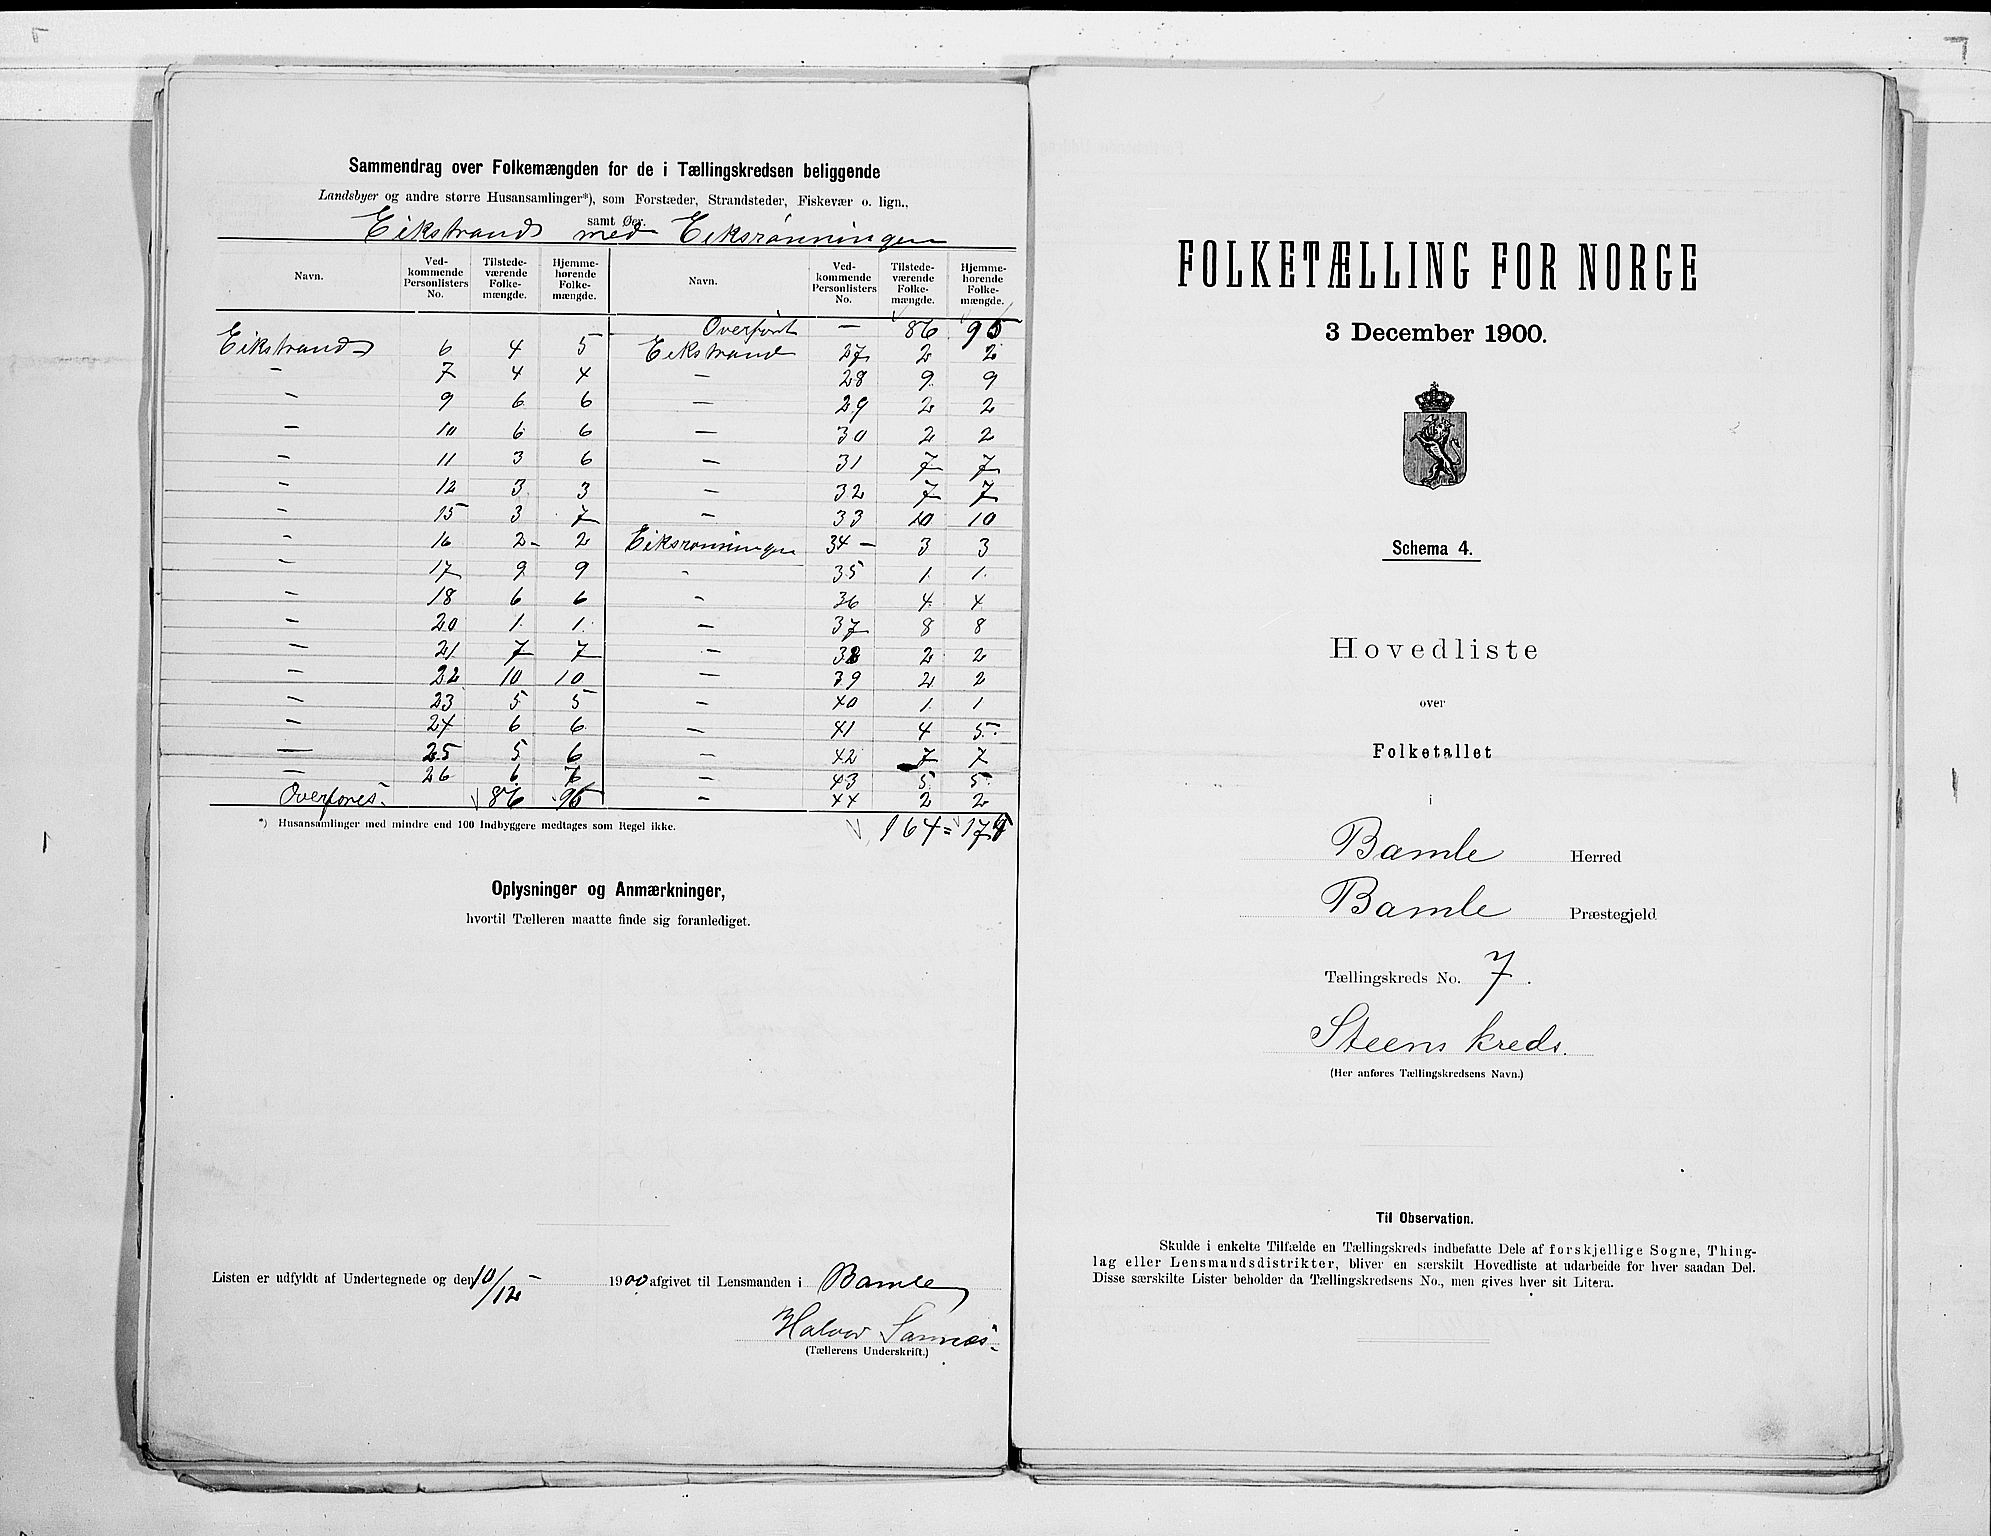 Sammendrag over Folkemængden for de i Tællingskredsen beliggende
Landsbyer og andre større Husansamlinger*), som Forstæder, Strandsteder, Fiskevær o. lign.,
samt Øer.
Eikstrand med Eiksrønningen
Navn. Ved-kommende Personlisters No. Tilstede-værende Folke-mængde. Hjemme-hørende Folke-mængde. Navn. Ved-kommende Personlisters No. Tilstede-værende Folke-mængde. Hjemme-hørende Folke-mængde.
Overført — 86 95
Eikstrand 6 4 5 Eikstrand 27 2 2
— 7 4 4 — 28 9 9
— 9 6 6 — 29 2 2
— 10 6 6 — 30 2 2
— 11 3 6 — 31 7 7
— 12 3 3 — 32 7 7
— 15 3 7 — 33 10 10
— 16 2 2 Eiksrønningen 34 — 3 3
— 17 9 9 — 35 1 1
— 18 6 6 — 36 4 4
— 20 1 1 — 37 8 8
— 21 7 7 — 38 2 2
— 22 10 10 — 39 2 2
— 23 5 5 — 40 1 1
— 24 6 6 — 41 4 5
— 25 5 6 — 42 7 7
— 26 6 — 43 5 5
Overføres. 86 95 — 44 2 2
*) Husansamlinger med mindre end 100 Indbyggere medtages som Regel ikke.
164 = 174
Oplysninger og Anmærkninger,
hvortil Tælleren maatte finde sig foranlediget.
Listen er udfyldt af Undertegnede og den 10/12 - 1900 afgivet til Lensmanden i Bamle
Halvor Sannæs.
(Tællerens Underskrift.)
FOLKETÆLLING FOR NORGE
3 December 1900.
Schema 4.
Hovedliste
over
Folketallet
i
Bamle Herred
Bamle Præstegjeld
Tællingskreds No. 7.
Steens kreds.
(Her anføres Tællingskredsens Navn.)
Til Observation.
Skulde i enkelte Tilfælde en Tællingskreds indbefatte Dele af forskjellige Sogne, Thing-
lag eller Lensmandsdistrikter, bliver en særskilt Hovedliste at udarbeide for hver saadan Del.
Disse særskilte Lister beholder da Tællingskredsens No., men gives hver sit Litera.